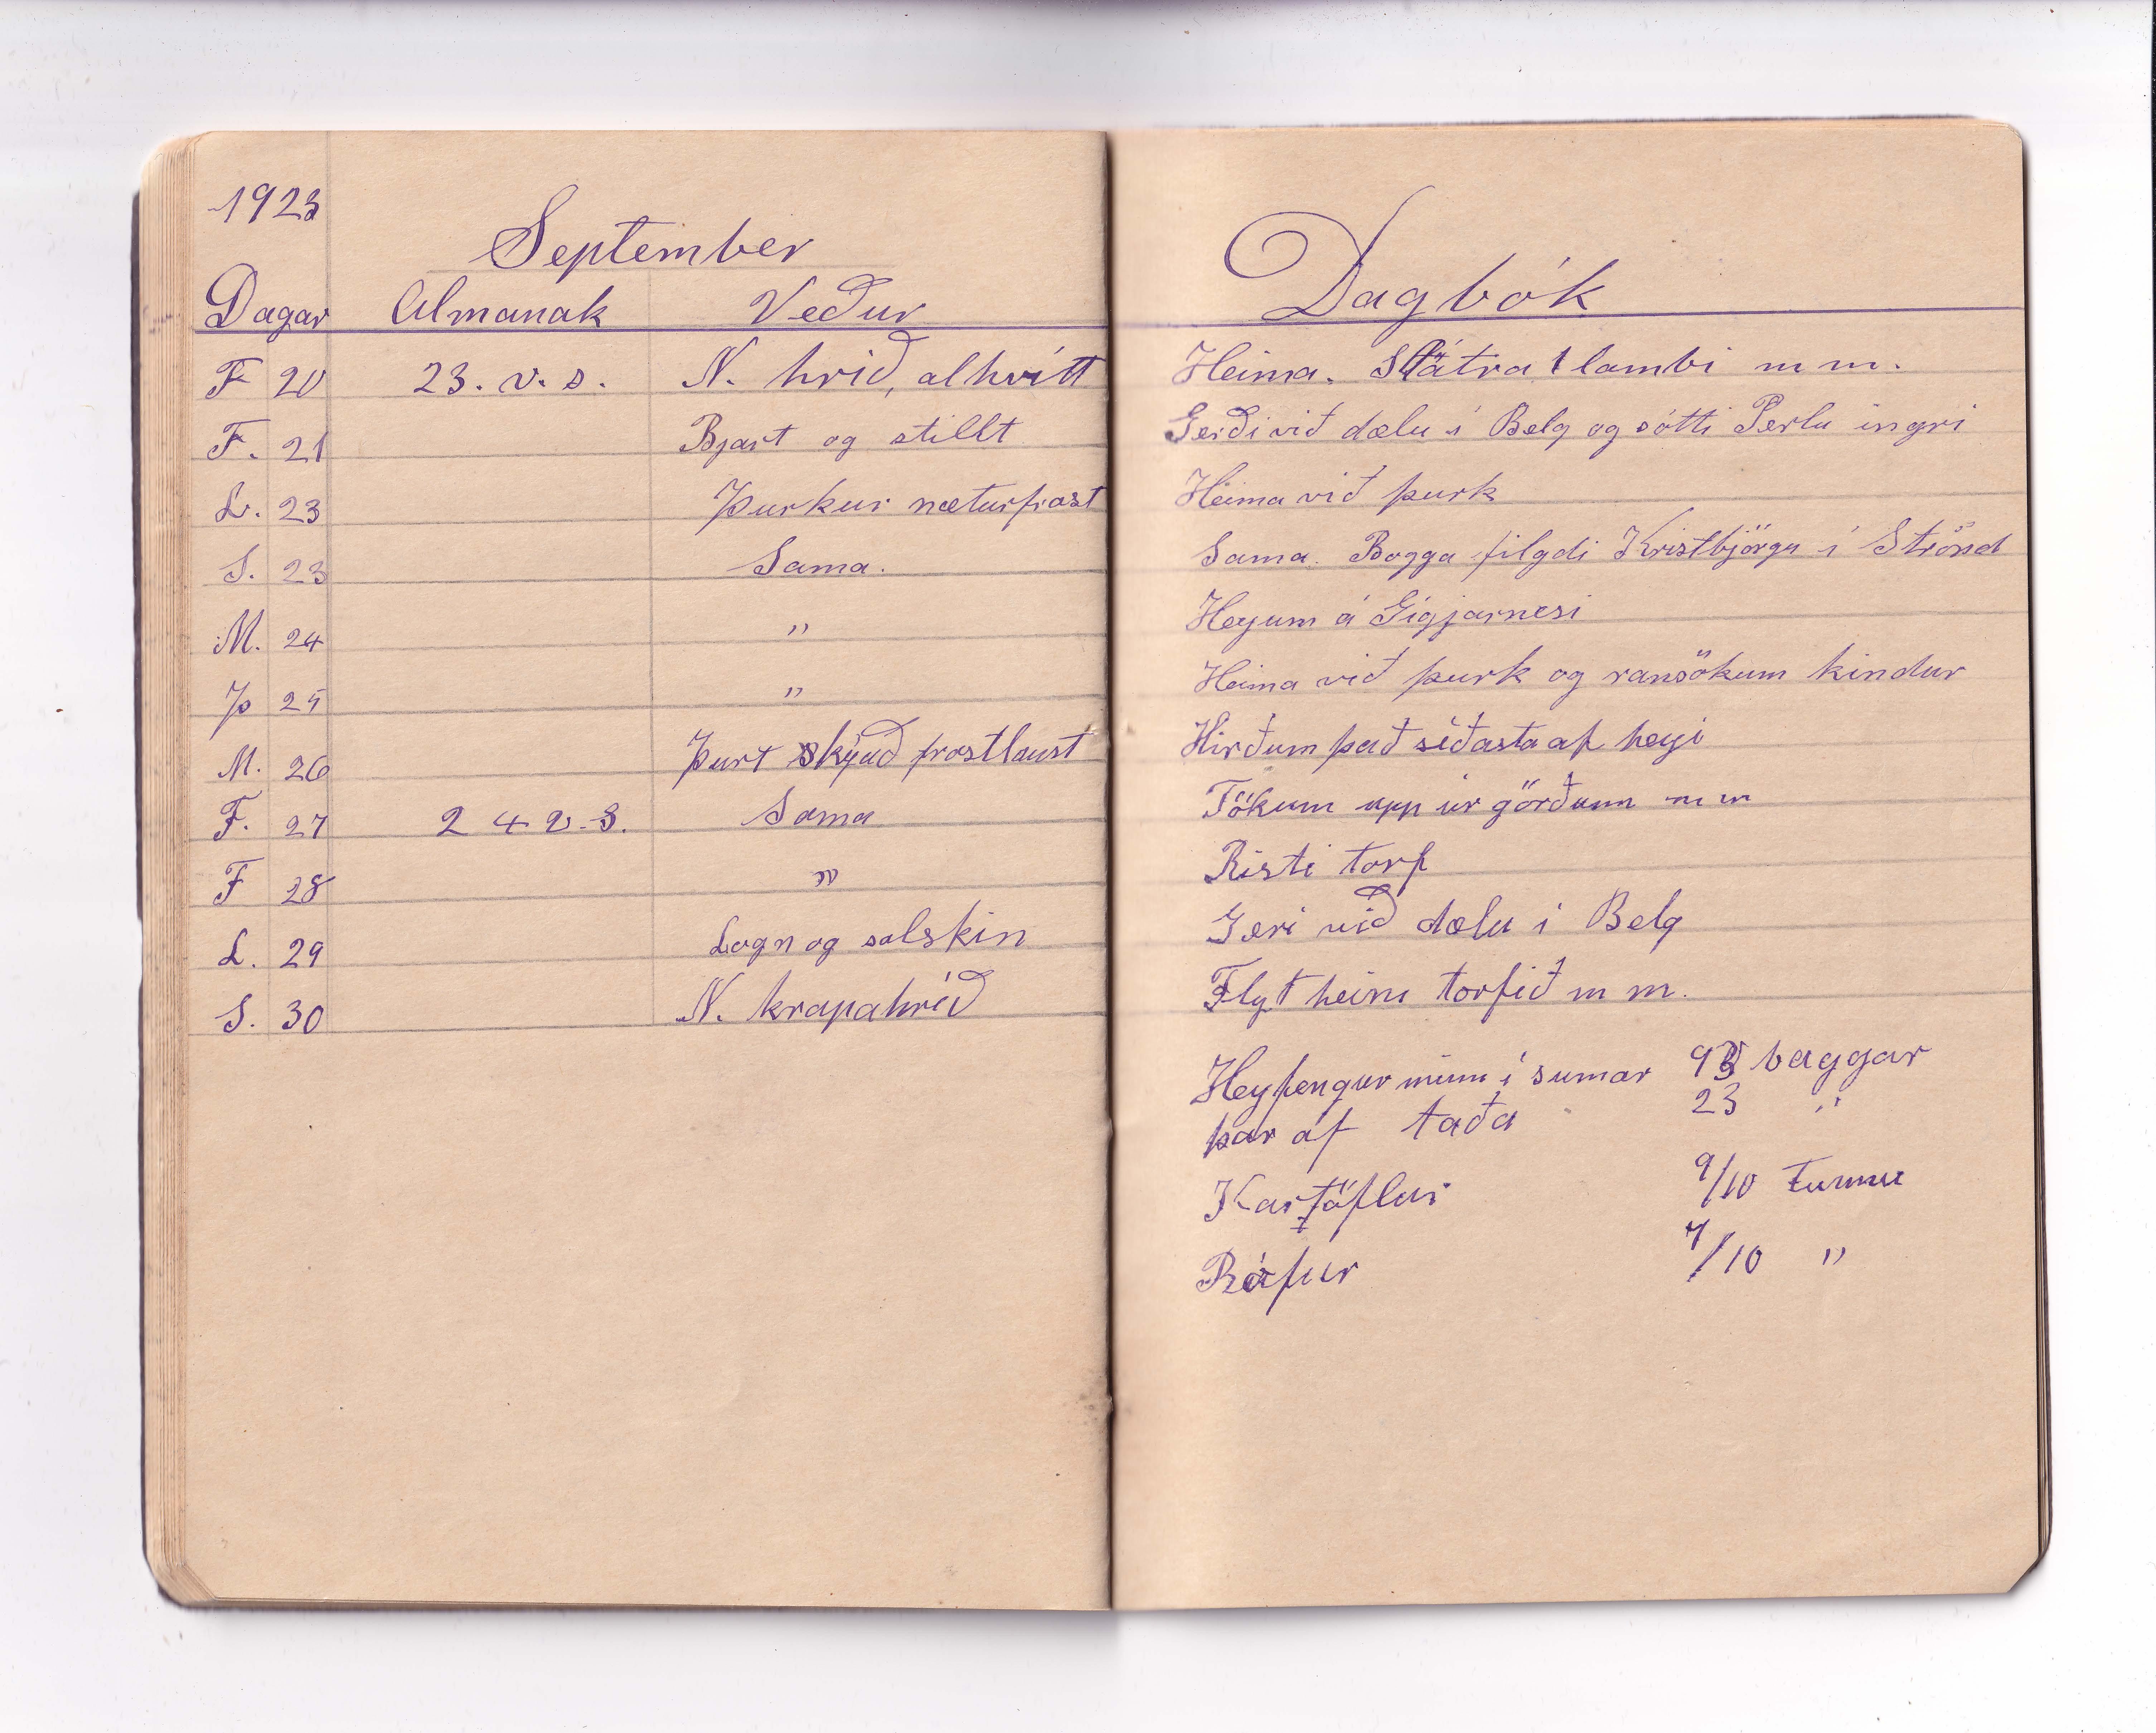 1923
September
Dagar Almanak Veður
F 20 23. v. s. N. hrið, alhvítt
F. 21 Bjart og stillt
L. 23 Þurkur næturfrost
S. 23 Sama.
M. 24 "
Þ 25 "
M. 26 Þurt skýað frostlaust
F. 27 24 v.s. Sama
F 28 "
L. 29 Logn og solskin
S. 30 N. krapahríð
Dagbók
Heima. Slátra 1 lambi m m.
Gerði við dælu í Belg og sótti Perlu ingri
Heima við þurk
Sama. Bogga filgdi Kristbjörgu í Strönd
Heyum á Gígjarnesi
Heima við þurk og ransökum kindur
Hirðum það síðasta af heyi
Tökum upp úr görðunm m m
Risti torf
Geri við dælu í Belg
Flyt heim torfið m m.
Heyfengur minn í sumar baggar
þar af taða 23 "
Kartöflur 9/10 tunnu
Rófur 7/10 "